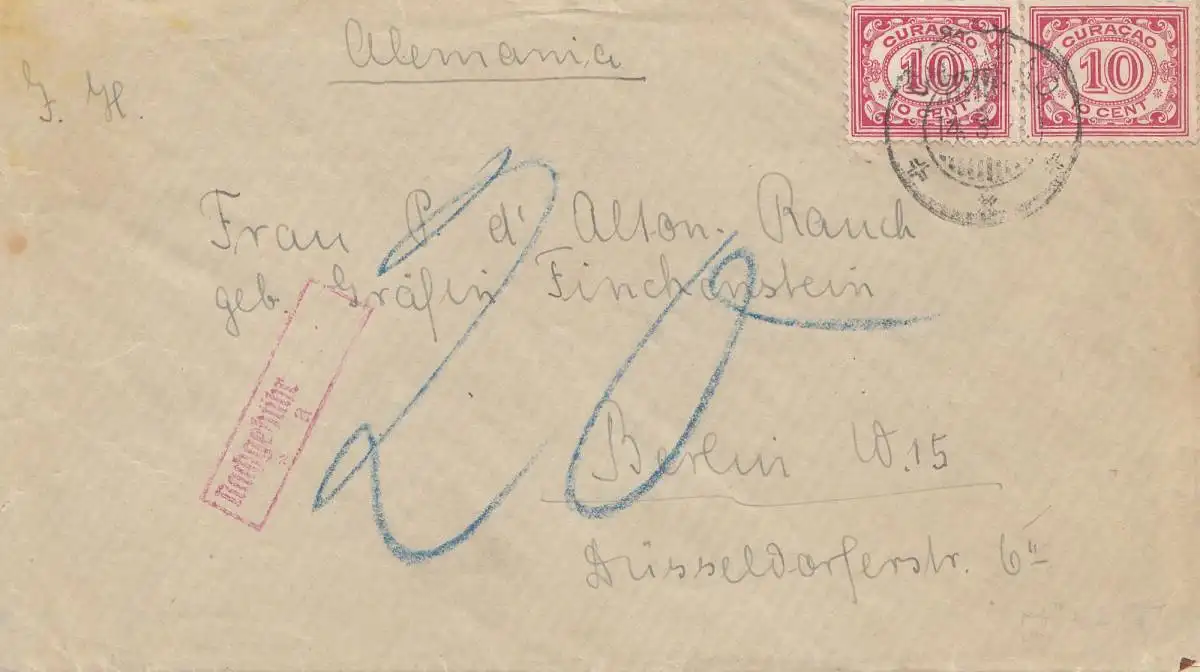 Alemania
J. H.
CURAÇAO CURAÇAO
10 10
10 CENT 10 CENT
14. 3
Frau P. d' Alton. Rauch
geb. Gräfin Finckenstein
20
Nachgebühr
a
Berlin W. 15
Düsseldorferstr. 6